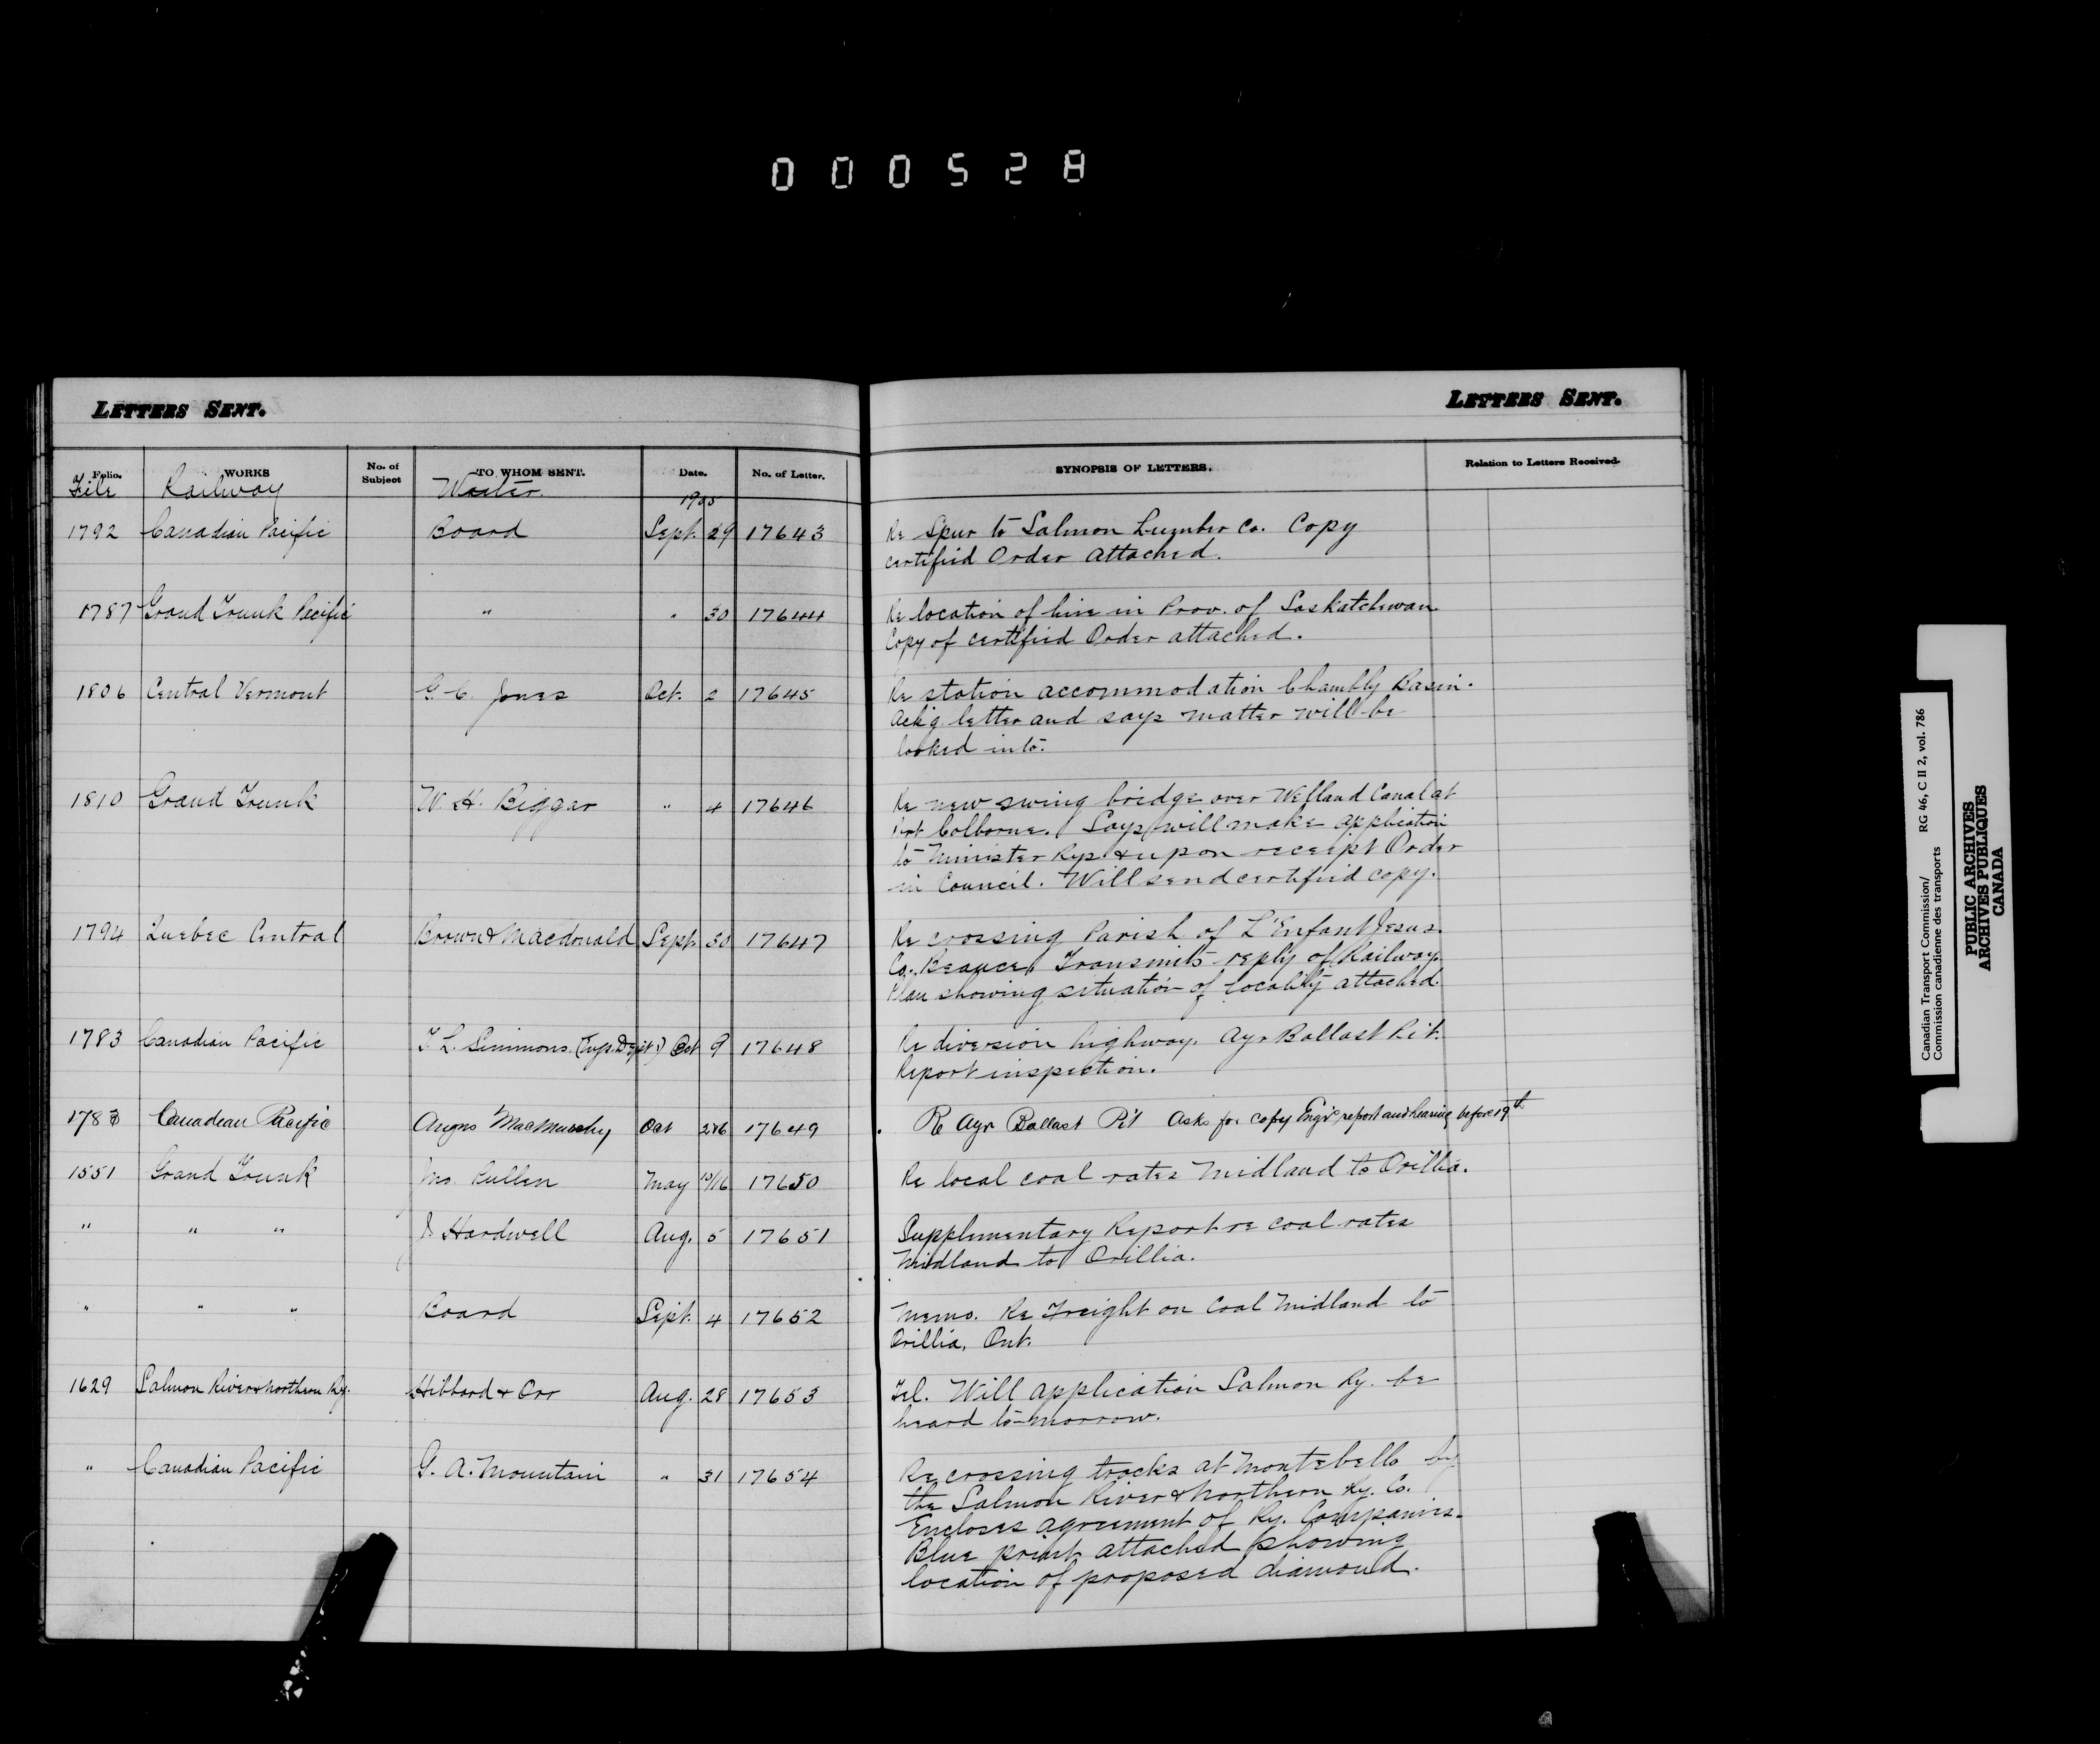 000528
LETTERS SENT.
LETTERS SENT.
Folio. WORKS No. of Subject TO WHOM SENT. Date. No. of Letter. SYNOPSIS OF LETTERS. Relation to Letters Received.
File Railway Writer. 1905
1792 Canadian Pacific Board Sept. 29 17643 Re Spur to Salmon Lumber Co. Copy
certified Order attached.
1787 Grand Trunk Pacific " " 30 17644 Re location of line in Prov. of Saskatchewan
Copy of certified Order attached.
1806 Central Vermont G. C. Jones Oct. 2 17645 Re station accommodation Chambly Basin.
Ack'g letter and says matter will be
looked into.
1810 Grand Trunk W. H. Biggar " 4 17646 Re new swing bridge over Welland Canal at
Port Colborne. Says will make application
to Minister Rys & upon receipt Order
in Council. Will send certified copy.
1794 Quebec Central Brown & Macdonald Sept. 30 17647 Re crossing Parish of L'Enfant Jesus.
Co. Beauce. Transmits reply of Railway.
Plan showing situation of locality attached.
1783 Canadian Pacific T. L. Simmons (Eng. Dept.) Oct 9 17648 Re diversion highway. Ayr Ballast Pit.
Report inspection.
1783 Canadian Pacific Angus MacMurchy Oct 17649 Re Ayr Ballast Pit Asks for copy Engr's report and hearing before 19th
1551 Grand Trunk Mr. Pullen May 15/16 17650 Re local coal rates Midland to Orillia.
" " " J Hardwell Aug. 5 17651 Supplimentary Report re coal rates
Midland to Orillia.
" " " Board Sept. 4 17652 Memo. Re Freight on Coal Midland to
Orillia, Ont.
1629 Salmon River & Northern Ry. Hibbard & Orr Aug. 28 17653 Tel. Will application Salmon Ry. be
heard to-morrow.
" Canadian Pacific G. A. Mountain " 31 17654 Re crossing tracks at Montebello by
the Salmon River & Northern Ry. Co.
Encloses agreement of Ry. Companies.
Blue print attached showing
location of proposed diamond.
Canadian Transport Commission/ RG 46, C II 2, vol. 786
Commission canadienne des transports
PUBLIC ARCHIVES
ARCHIVES PUBLIQUES
CANADA